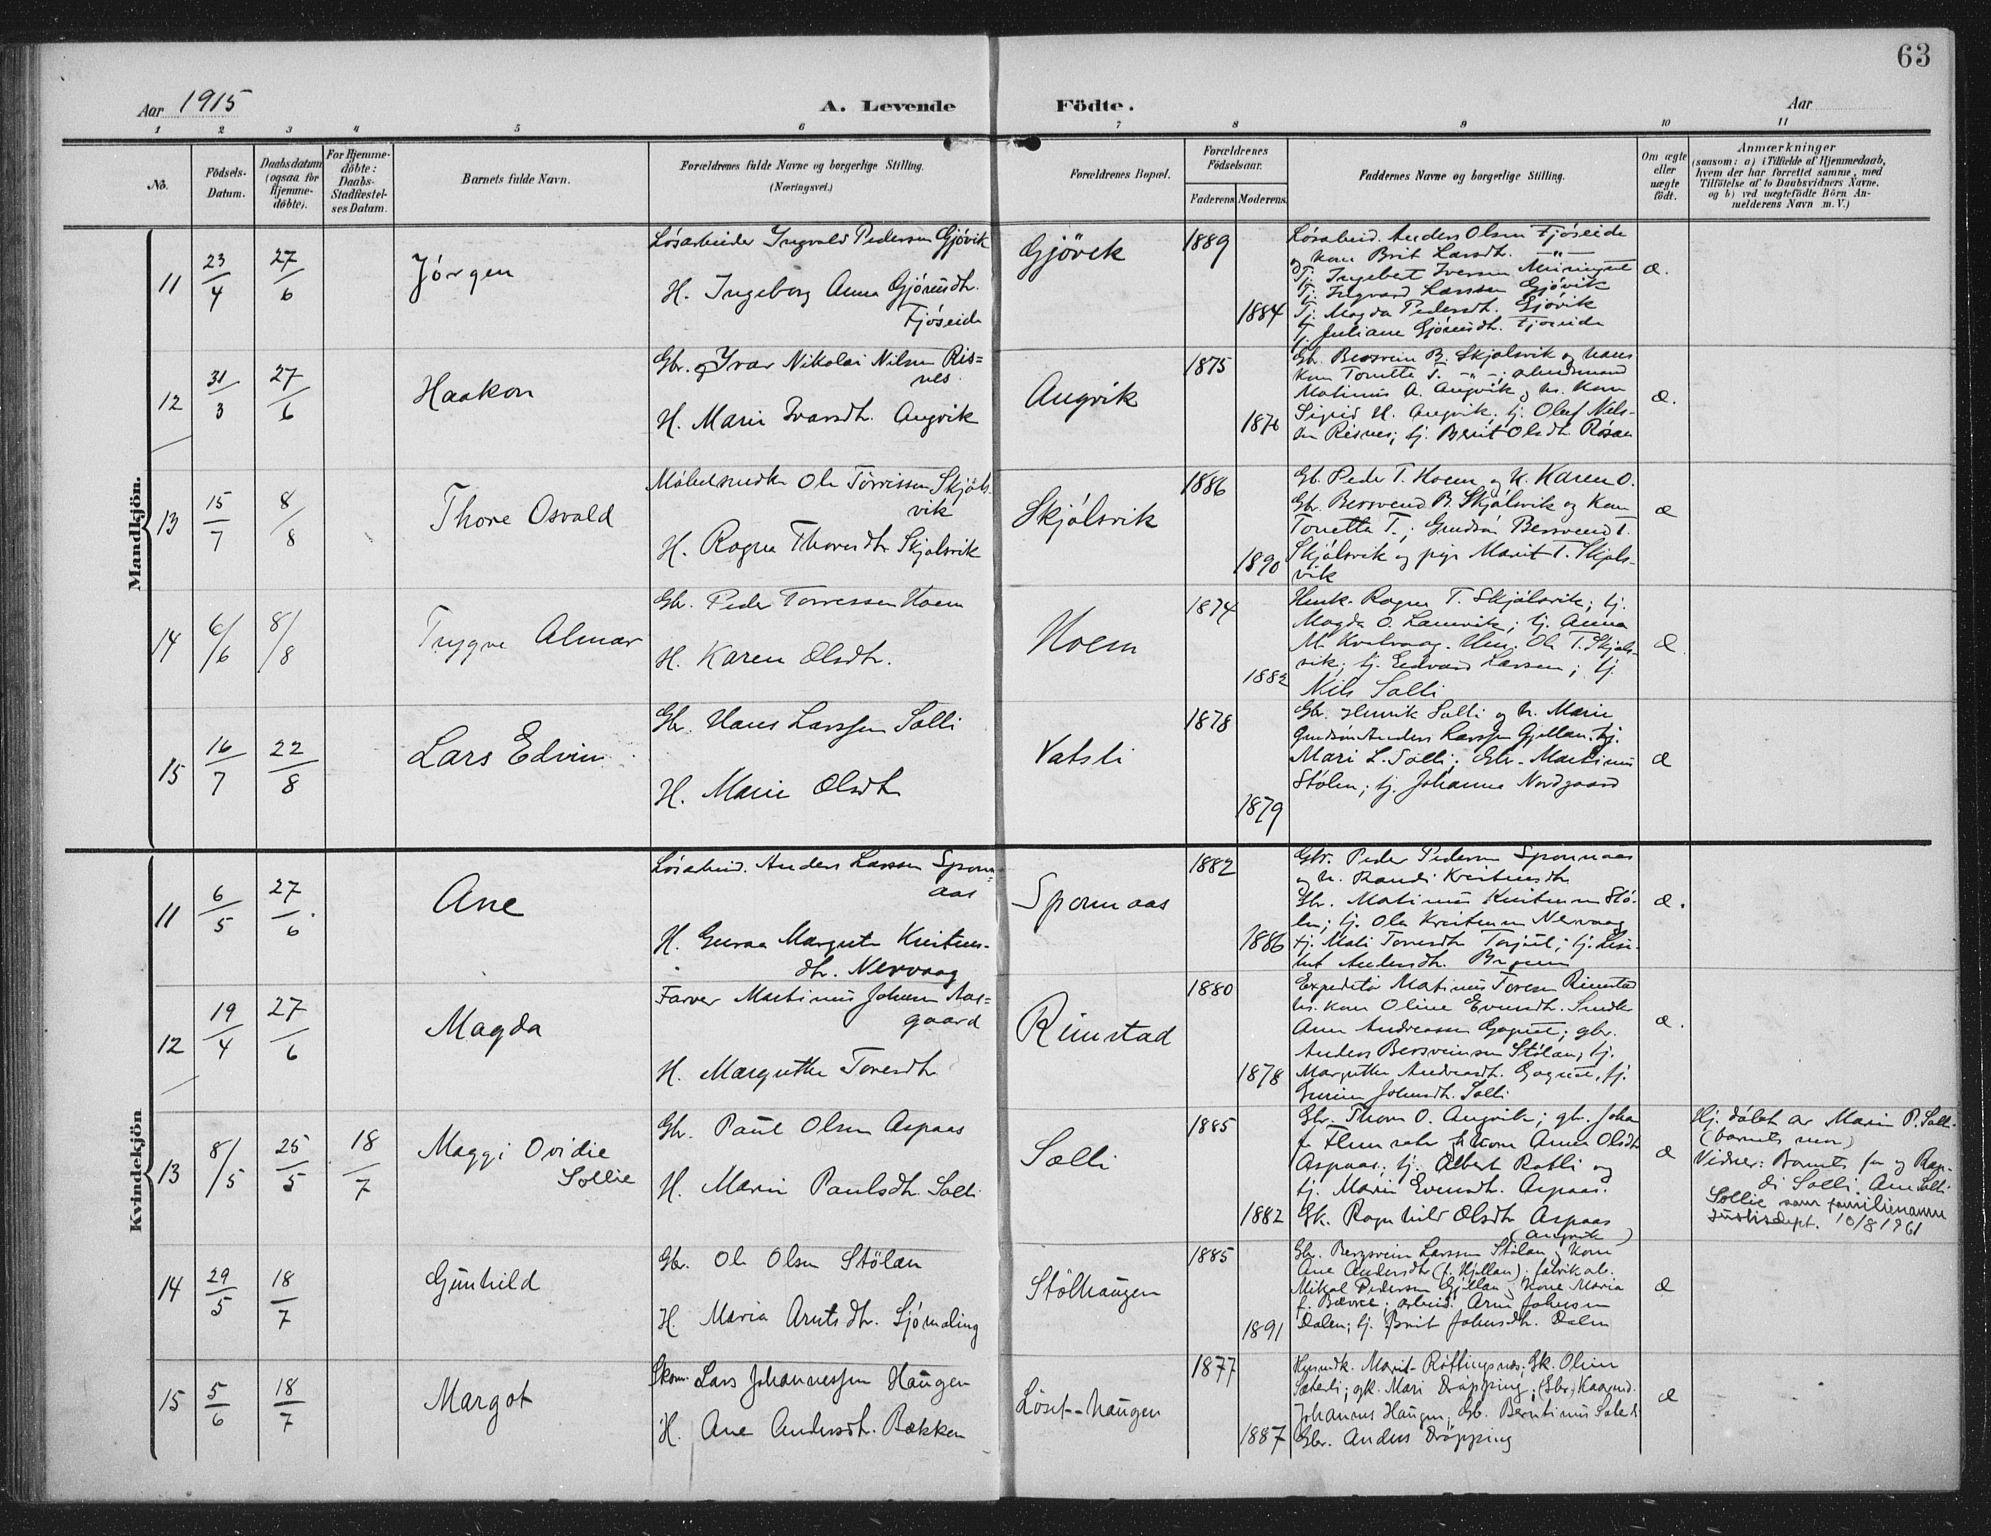 63
Aar 1915
A. Levende Födte.
Aar
1 2 3 4 5 6 7 8 9 10 11
No.
Födsels-
Datum.
Daabsdatum
(ogsaa for
Hjemme-
döbte).
For Hjemme-
döbte:
Daabs-
Stadfæstel-
ses Datum.
Barnets fulde Navn.
Forældrenes fulde Navne og borgerlige Stilling.
(Næringsvei.)
Forældrenes Bopæl.
Forældrenes
Födselsaar.
Faderens. Moderens.
Faddernes Navne og borgerlige Stilling.
Om ægte
eller
uægte
födt.
Anmærkninger
(saasom: a) i Tilfælde af Hjemmedaab,
hvem der har forrettet samme, med
Tilföielse af to Daabsvidners Navne,
og b) ved uægtefödte Börn An-
melderens Navn m. V.)
Mandkjön.
11 23/4 27/6 Jørgen
Løsarbeider Ingvald Pedersen Gjövik
H. Ingeborg Anna
Fjöseide
Gjövik
1889
1884
Løsarbeid. Anders Olsen Fjöseide
Kone Brit Larsdt. -"-
Tj. Ingebret Iversen
Tj. Ingvard Larssen Gjövik
Tj. Magda Pedersdt. Gjövik
Tj. Juliane Fjöseide
æ.
12 31/3 27/6 Haakon
Gbr. Ivar Nikolai Nilsen Ris=
nes
H. Marie Ivarsdt. Angvik
Angvik
1875
1876
Gbr. Bersvein B. Skjølsvik og hans
Kone Tonetta T. -"-;
Matinus A. Angvik, hs. Kone
Sigrid H. Angvik; tj. Oluf Niels-
sen Risnes; tj. Berit Olsdt.
æ.
13 15/7 8/8 Thore Osvald
Møbelsnedker Ole Torrissen Skjöls
vik
H. Ragna Thoresdtr Skjølsvik
Skjölsvik
1886
1890
Gb. Peder T. Hoem og H. Karen O.
Gbr. Bersvend B. Skjölsvik og Kone
Tonetta T.; Gaardsøn Bersvend T.
Skjölsvik og pige Marit T. Skjøls-
vik
æ
14 6/6 8/8 Trygve Almar
Gbr. Peder Torressen Hoem
H. Karen Olsdtr.
Hoem
1874
1882
Ragna T. Skjölsvik; tj.
Magda O. tj. Anna
M. Kvalvaag. Ole T. Skjøls-
vik; tj. Edvard Larsen; tj.
Nils Solli
æ.
15 16/7 22/8 Lars Edvin
Gbr. Hans Larssen Solli
H. Marie Olsdtr
Vatsli
1878
1879
Gbr. Henrik Solli og h. Marie
Gaardsøn Anders Larssen Gjellan; tj.
Mari L. Solli; Gbr. Martinus
Stölen; tj. Johanna Nordgaard
æ
Kvindekjön
11 6/5 27/6 Ane
Løsarbeid. Anders Larssen Sporn=
aas
H. Guroa Margrete Kristens-
dtr. Nervaag
Spornaas
1882
1886
Gbr. Peder Pedersen Spornaas
og h. Randi Kristensdtr
Gbr. Matinus Kristensen Stö-
len; tj. Ole Kristensen Nervaag
tj. Mali Toresdtr tj. Lisi-
bet Andersdtr.
æ.
12 19/4 27/6 Magda
Farver Martinus Johnsen Aas=
gaard
H. Margrethe Toresdtr
Rimstad
1880
1878
Expeditør Matinus Toresen Rimstad
hs. Kone Oline Smeder
Arne Andreassen gbr.
Anders Bersveinsen Stölan; tj.
Margrethe Andreasdt. tj.
Johnsdt. Solli
æ.
13 8/5 25/5 18/7 Maggi Ovidie
Sollie
Gbr. Paul Olsen Aspaas
H. Marie Paulsdtr. Solli
Solli
1885
1882
Gbr. Thom. O. Angvik; gbr. Johan
Kone Anne Olsdt
Aspaas; tj. Albert Rotli og
tj. Marie Evensdt. Aspaas.
Gk. Ragnhild Olsdtr Aspaas
(Angvik)
æ
Hj. døbt av Marie P. Solli
(barnets mor)
Vidner: Barnets far og Ran-
di Solli. Solli
Sollie som familienavn
Justisdept. 10/8 1961
14 29/5 18/7 Gunhild
Gbr. Ole Olsen Stölan
H. Maria Arntsdtr. Sjömæling
Stölhaugen
1885
1891
Gbr. Bergsvein Larssen Stölan, Kone
Ane Andersdtr (f. Hjellan); fabrikarb.
Mikal Pedersen Gjellan, Kone Maria
f. Bævre; arbeid. Arne Johnsen
Dalen; tj. Brit Johnsdt. Dalen
æ
15 5/6 18/7 Margot
Skom. Lars Johannessen Haugen
H. Ane Andersdtr. Bækken
Löset-haugen
1877
1887
Marit Röttingsnæs; Gk. Oline
Sæterli; gk. Mari Dröpping; (Gbr)
Johannes Haugen; Gb. Berntinus Sæterli
Gbr. Anders Dröpping
æ